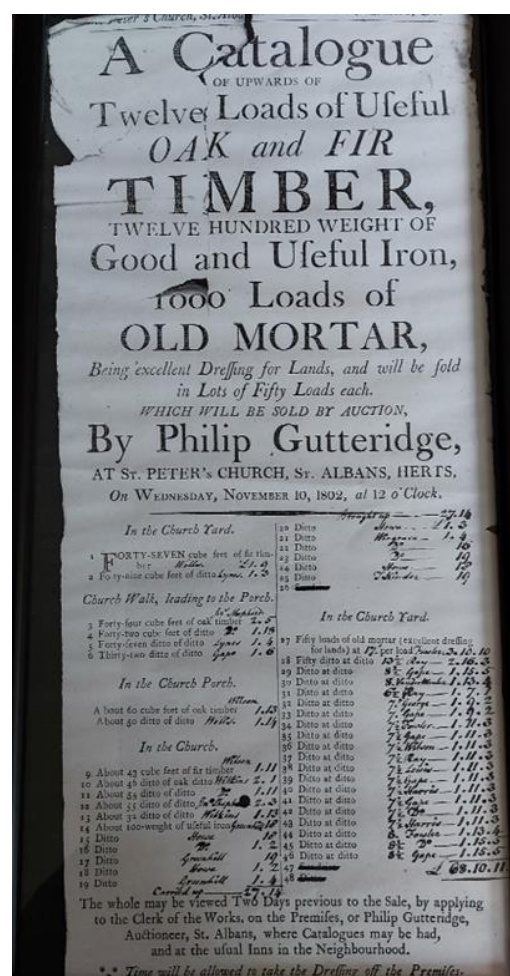 A Catalogue
OF UPWARDS OF
Twelve Loads of Uſeful
OAK and FIR
TIMBER,
TWELVE HUNDRED WEIGHT OF
Good and Uſeful Iron,
1000 Loads of
OLD MORTAR,
Being excellent Dreſſing for Lands, and will be ſold
in Lots of Fifty Loads each.
WHICH WILL BE SOLD BY AUCTION,
By Philip Gutteridge,
AT ST. PETER's CHURCH, ST. ALBANS, HERTS,
On WEDNESDAY, NOVEMBER 10, 1802, at 12 o'Clock.
In the Church Yard.
1 FORTY-SEVEN cube feet of fir tim-
ber
2 Forty-nine cube feet of ditto Lynes 1.3
Church Walk, leading to the Porch.
3 Forty-four cube feet of oak timber 2.5
4 Forty-two cube feet of ditto Do 1.18
5 Forty-seven ditto of ditto Lynes 1.4
6 Thirty-two ditto of ditto Gape 1.6
In the Church Porch.
Wilson
About 60 cube feet of oak timber 1.13
About 50 ditto of ditto 1.14
In the Church.
Wilson
9 About 43 cube feet of fir timber 1.11
10 About 46 ditto of oak ditto Wilkins 2.1
11 About 54 ditto of ditto Do 1.11
12 About 55 ditto of ditto 2.3
13 About 32 ditto of ditto Wilkins 1.13
14 About 100-weight of uſeful iron Greenhill 18
15 Ditto Howe 18
16 Ditto Do 1.2
17 Ditto Greenhill 19
18 Ditto Howe 1.2
19 Ditto Greenhill 1.4
Carried up 27.14
Brought up 27.14
20 Ditto Howe £1.3
21 Ditto 1.4
22 Ditto Do 18
23 Ditto Do 19
24 Ditto Howe 18
25 Ditto 19
26
In the Church Yard.
27 Fifty loads of old mortar (excellent dreſſing
for lands) at 17. per load Fowler 3.10.10
28 Fifty ditto at ditto 13½ Ray 2.16.3
29 Ditto at ditto 8½ Gape 1.15.5
30 Ditto at ditto 8 1.13.4
31 Ditto at ditto 6½ Ray 1.7.1
32 Ditto at ditto 7 George 1.9.2
33 Ditto at ditto 7 Gape 1.9.2
34 Ditto at ditto 7½ Fowler 1.11.3
35 Ditto at ditto 7½ Gape 1.11.3
36 Ditto at ditto 7½ Wilson 1.11.3
37 Ditto at ditto 7½ Ray 1.11.3
38 Ditto at ditto 7½ Lewis 1.11.3
39 Ditto at ditto 7½ Gape 1.11.3
40 Ditto at ditto 7½ Harris 1.11.3
41 Ditto at ditto 7½ Gape 1.11.3
42 Ditto at ditto 7½ Do 1.11.3
43 Ditto at ditto 7½ Harris 1.11.3
44 Ditto at ditto 8 Fowler 1.13.4
45 Ditto at ditto 8½ Do 1.15.5
46 Ditto at ditto 8½ Gape 1.15.5
47
48
£68.10.11
The whole may be viewed Two Days previous to the Sale, by applying
to the Clerk of the Works, on the Premiſes, or Philip Gutteridge,
Auctioneer, St. Albans, where Catalogues may be had,
and at the uſual Inns in the Neighbourhood.
*.* Time will be allowed to take the Dreſſing off the Premiſes.